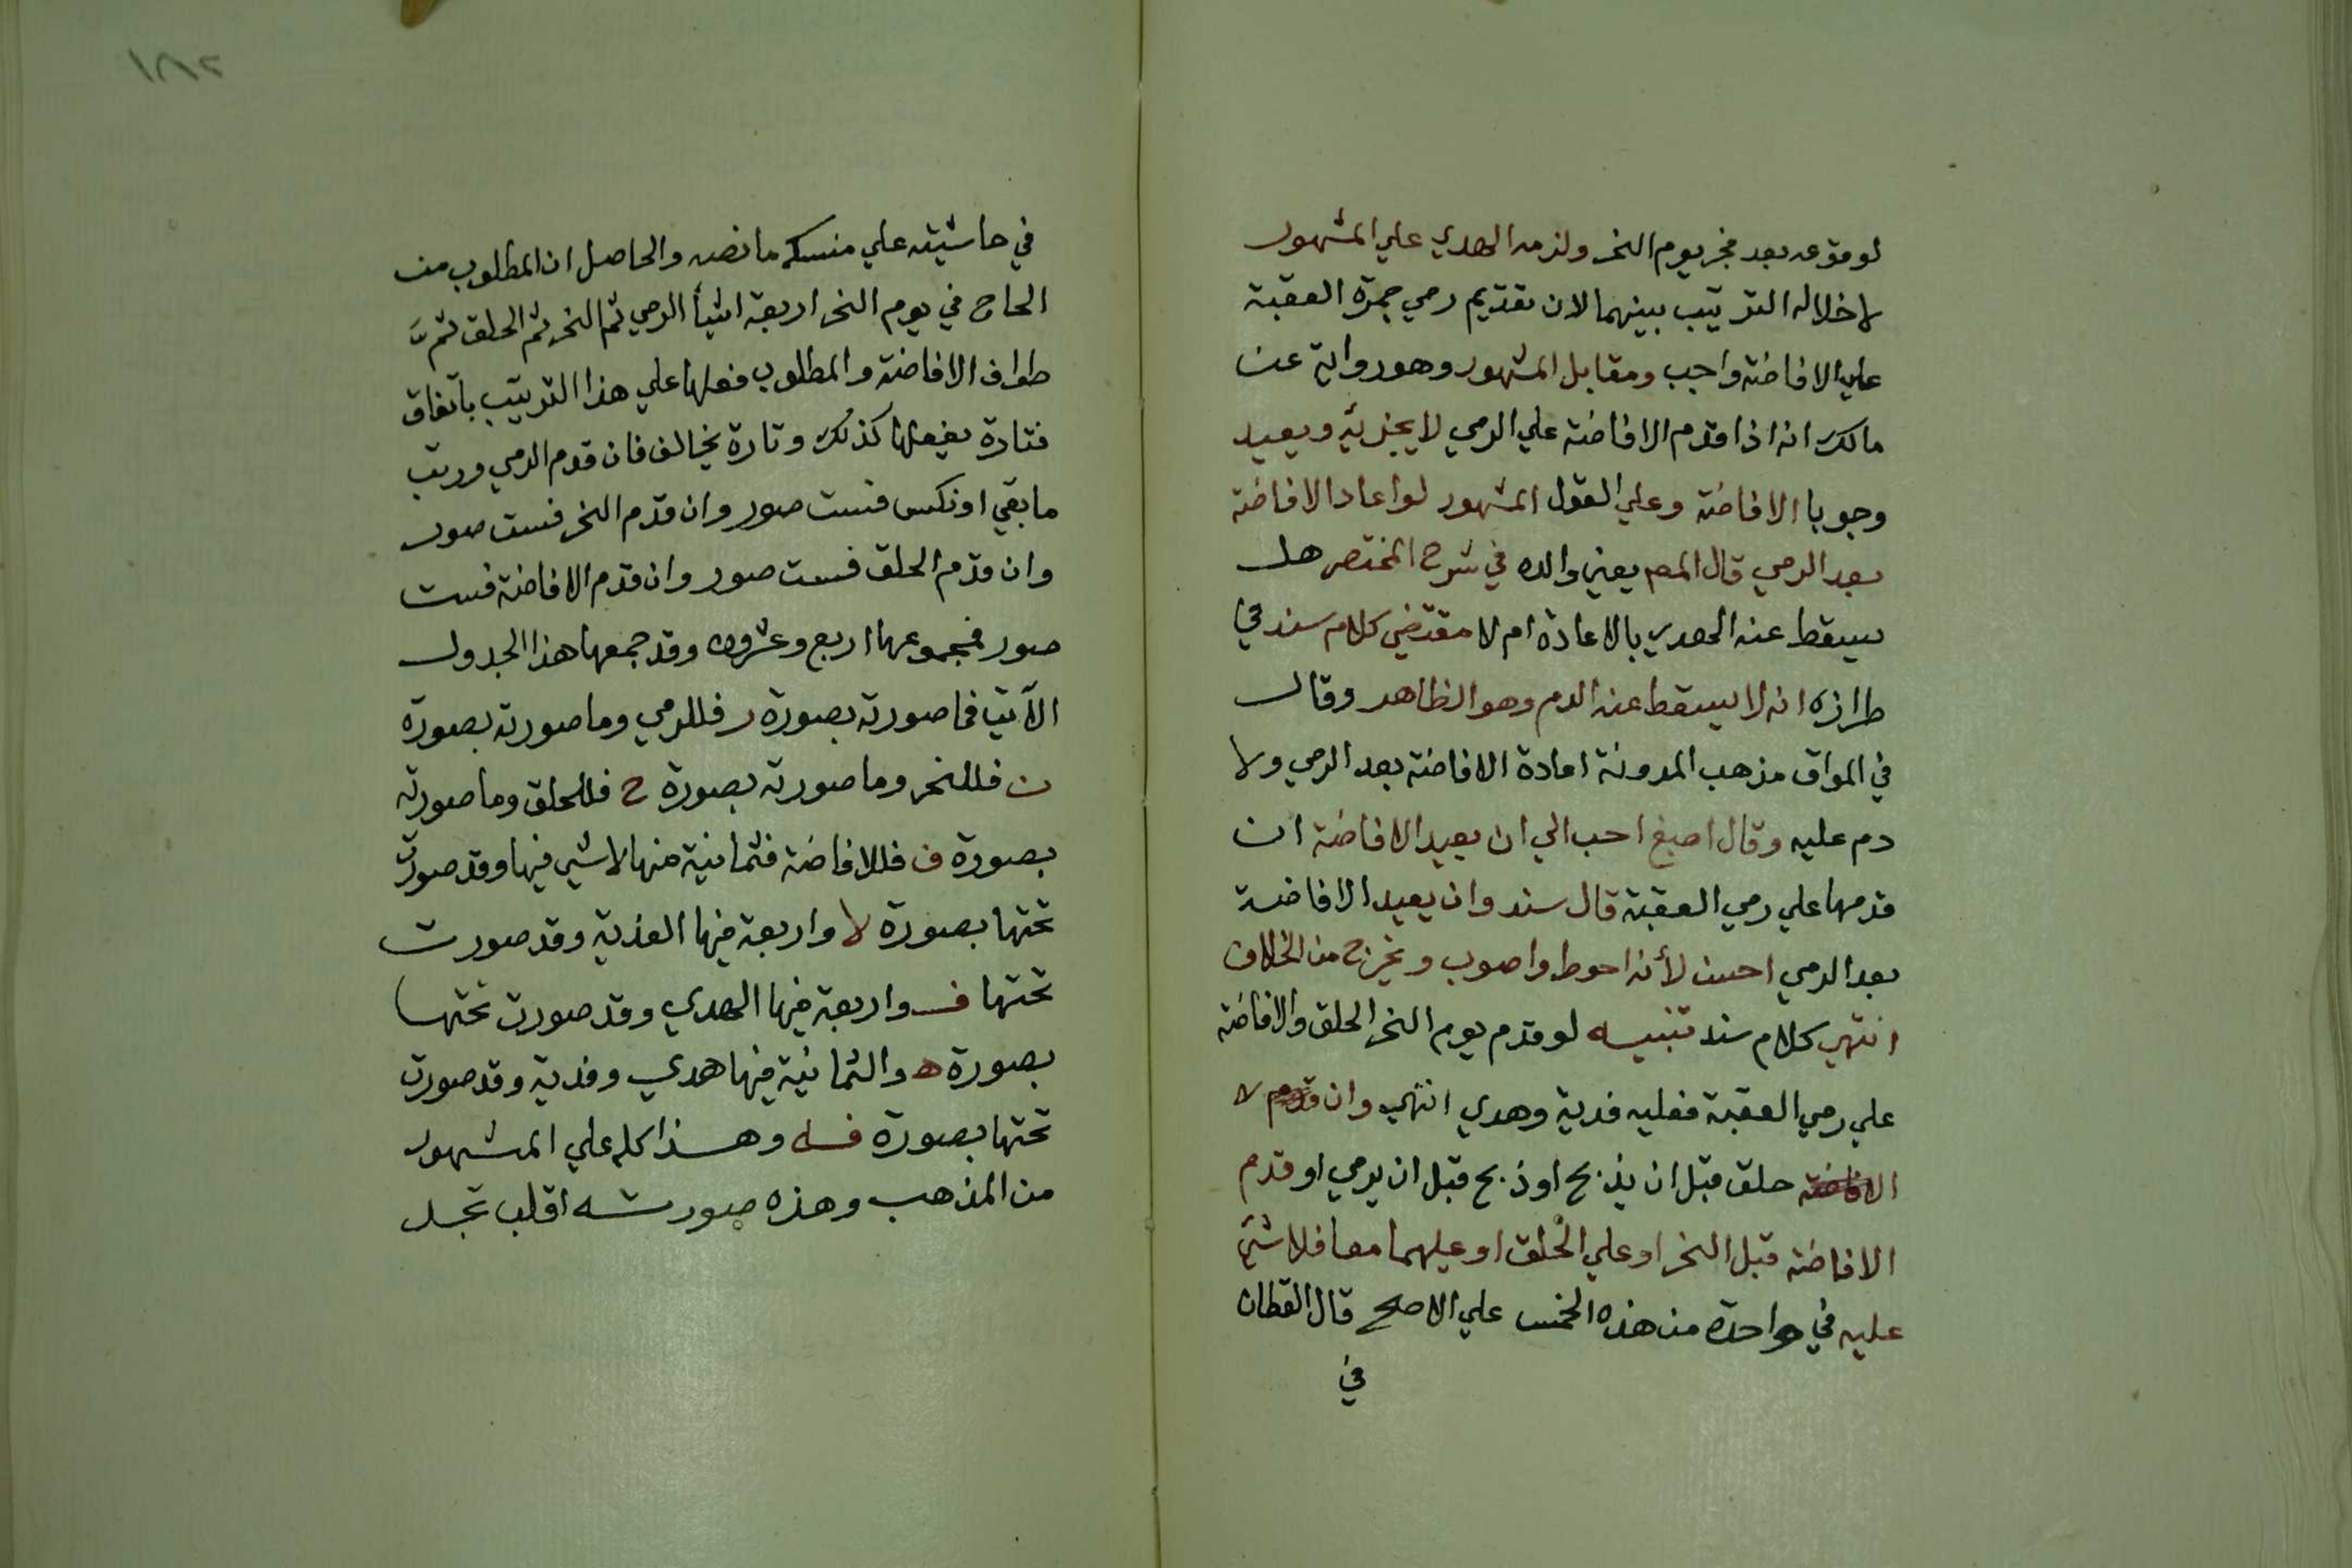 لوقوعه بعد فجر يوم النحر ولزمه الهدي علي المشهور
لاخلاله الترتيب بينهما لان تقديم رمي جمرة العقبة
علي الافاضة واجب ومقابل المشهور وهو رواية عن
مالك انه اذا قدم الافاضة علي الرمي لا يجزيه ويعيد
وجوبا الافاضة وعلي القول المشهور لو اعاد الافاضة
بعد الرمي قال المصـ يعني والده في شرح المختصر هل
يسقط عنه الهدي بالاعادة ام لا مقتضي كلام سند في
طرازه انه لا يسقط عنه الدم وهو الظاهر وقال
في المواق مذهب المدونة اعادة الافاضة بعد الرمي ولا
دم عليه وقال اصبغ احب الي ان يعيد الافاضة ان
قدمها علي رمي العقبة قال سند وان يعيد الافاضة
بعد الرمي احسن لأنه احوط واصوب ويخرج من الخلاف
انتهي كلام سند تنبيه لو قدم يوم النحر الحلق والافاضة
علي رمي العقبة فعليه فدية وهدي انتهي وان قدم لا
الافاضة حلق قبل ان يذبح او ذبح قبل ان يرمي او قدم
الافاضة قبل النحر او علي الحلق او عليهما معا فلا شئ
عليه في واحدة من هذه الخمس علي الاصح قال القطان
في
١٨٢
في حاشيته علي منسكه ما نصه والحاصل ان المطلوب من
الحاج في يوم النحر اربعة اشيأ الرمي ثم النحر ثم الحلق ثم
طواف الافاضة والمطلوب فعلها علي هذا الترتيب باتفاق
فتارة يفعلها كذلك وتارة يخالف فان قدم الرمي ورتب
ما بقي او نكس فست صور وان قدم النحر فست صور
وان قدم الحلق فست صور وان قدم الافاضة فست
صور فمجموعها اربع وعشرون وقد جمعها هذا الجدول
الآتي فما صورته بصورة ر فللرمي وما صورته بصورة
ن فللنحر وما صورته بصورة ح فللحلق وما صورته
بصورة ف فللافاضة فثمانية منها لا شي فيها وقد صورت
تحتها بصورة لا واربعة فيها الفدية وقد صورت
تحتها ف واربعة فيها الهدي وقد صورت تحتها
بصورة ه والثمانية فيها هدي وفدية وقد صورت
تحتها بصورة فه وهذا كله علي المشهور
من المذهب وهذه صورته اقلب تجد